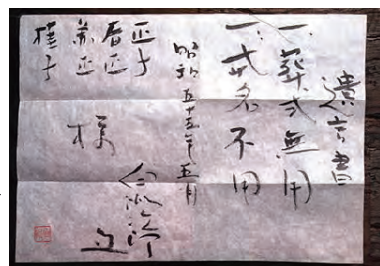 遺言書
一、葬式無用
一、戒名不用
昭和五十五年五月
白洲次郎
正子
春正
兼正
桂子
様